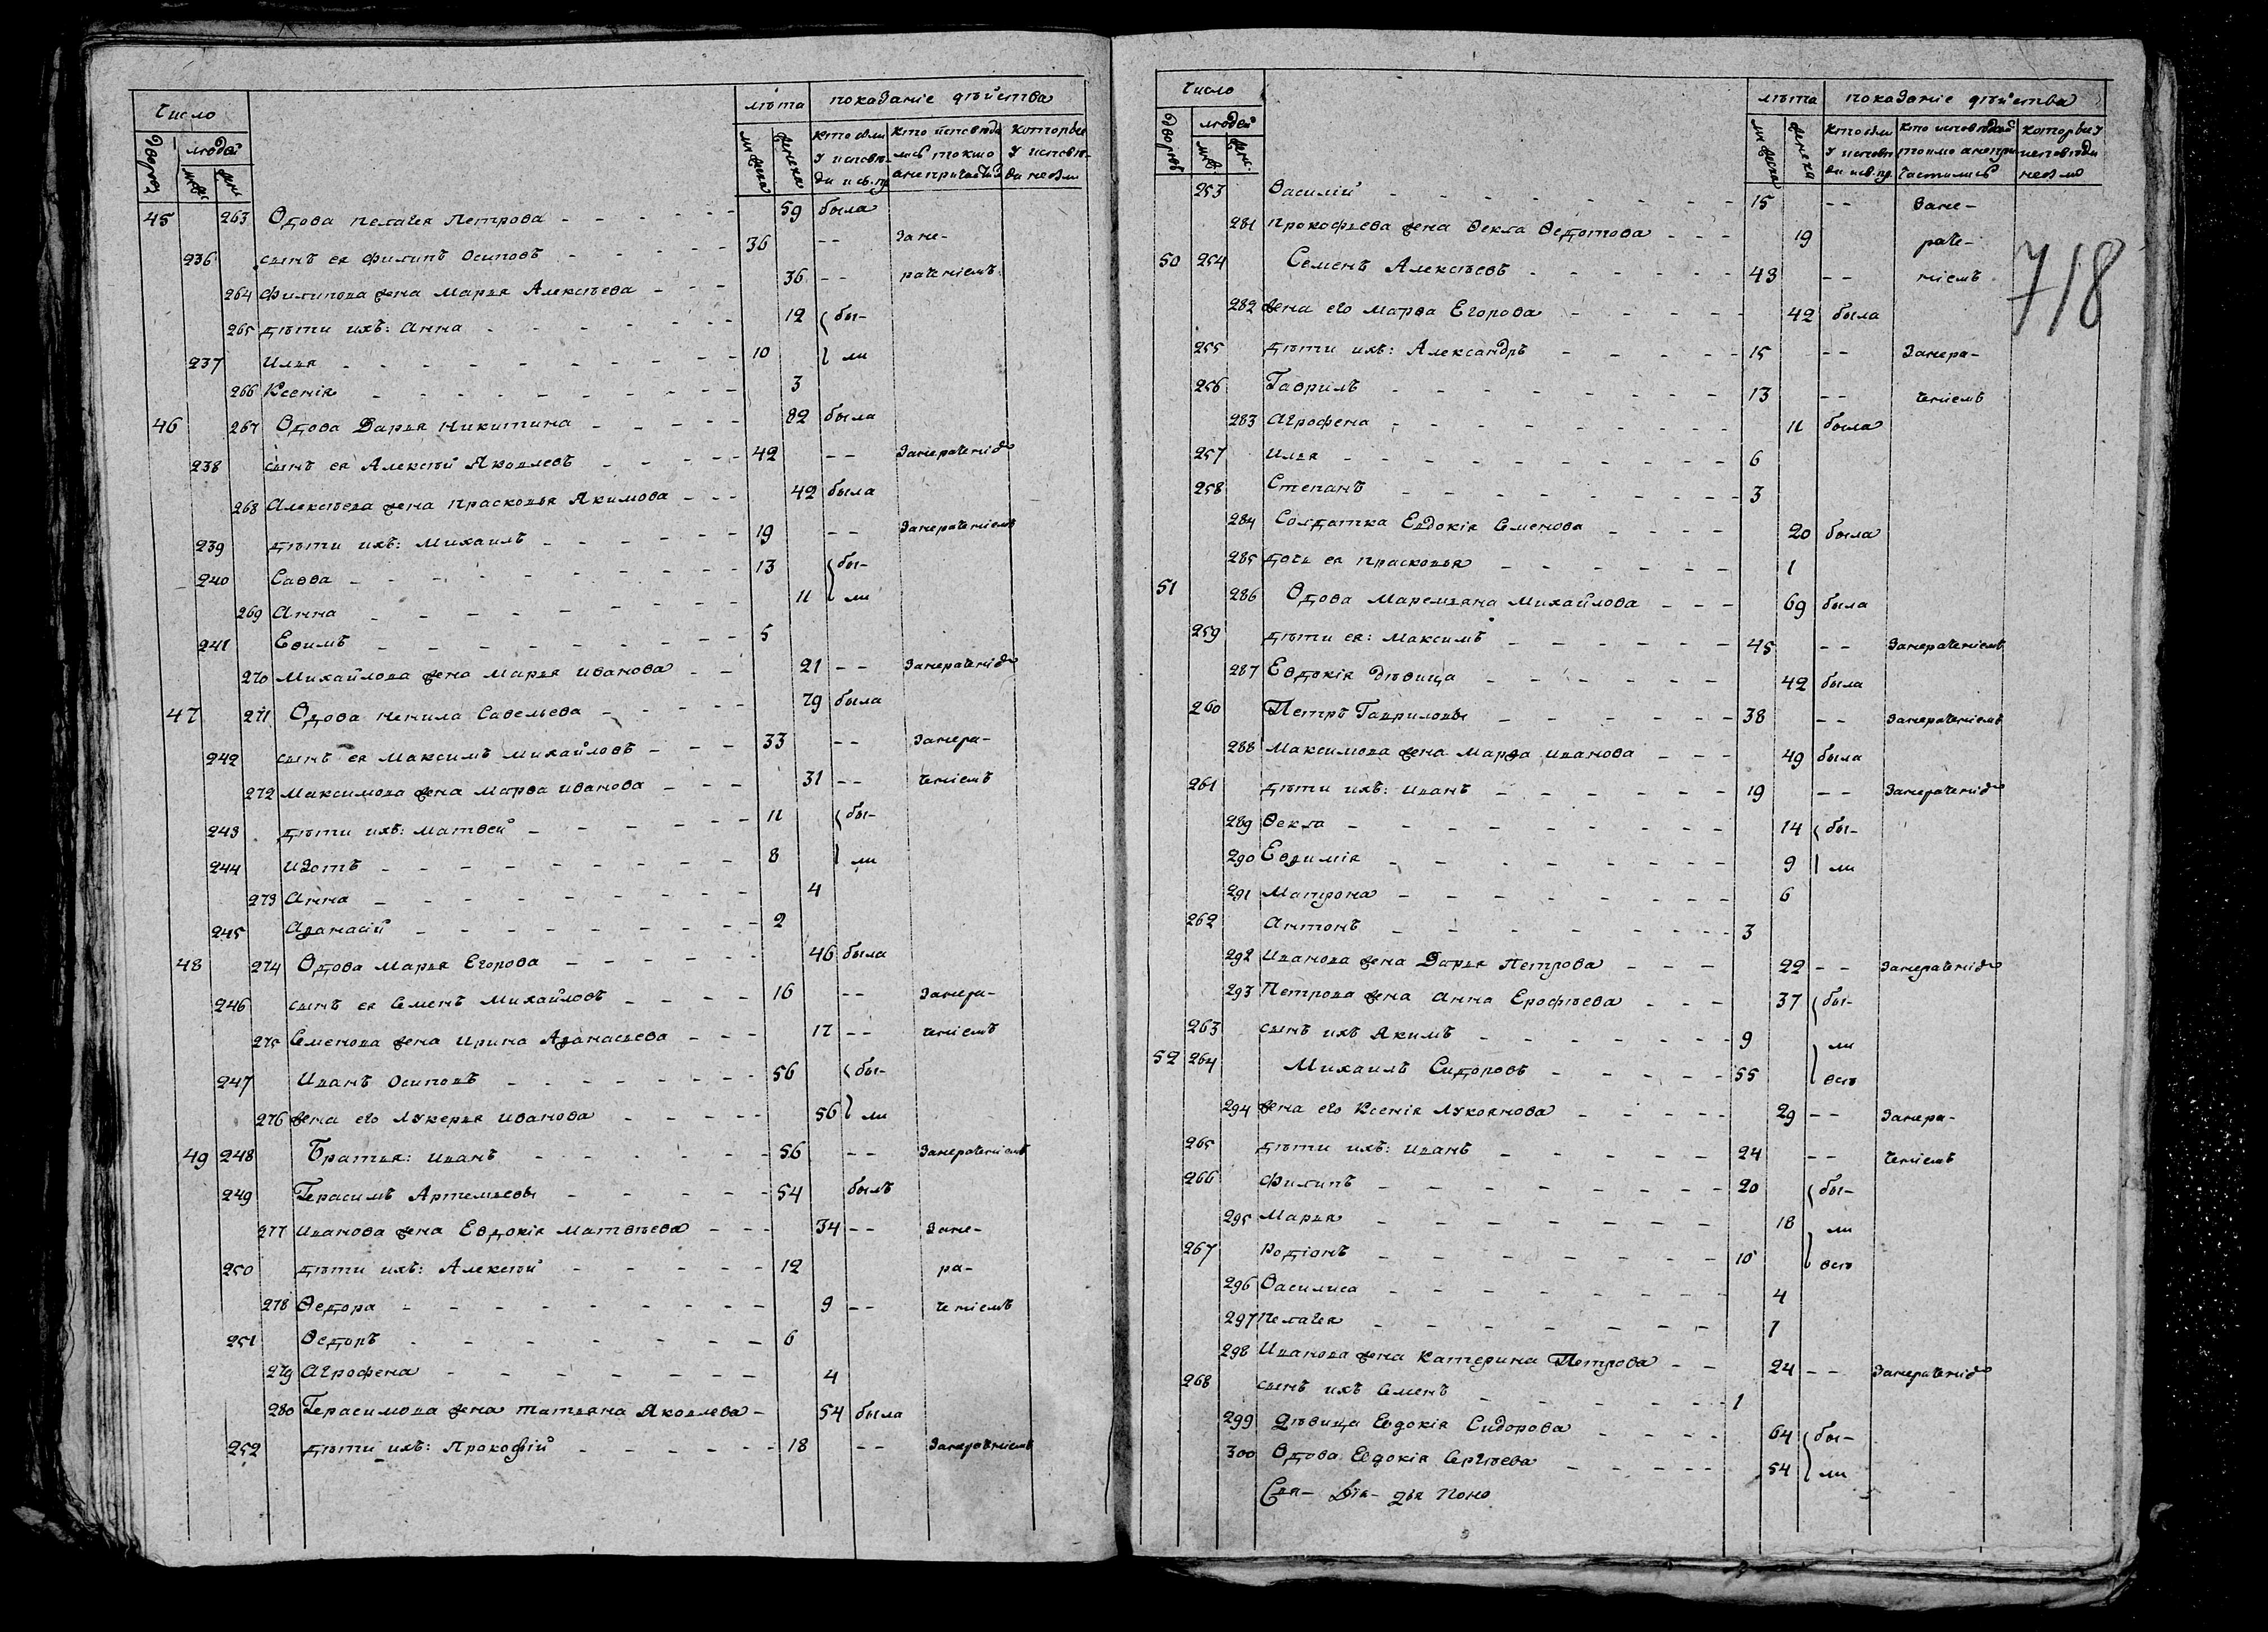 Число
лѣта показаніе дѣйства
Дворовъ людей муж. жен.
мужеска женска
кто были у исповѣди и св. пр.
кто исповѣдались токмо а не причастил
которые у исповѣди не были
45 263 Вдова Пелагея Петрова 59 была
236 сынъ ея Филипъ Осиповъ 36 -- Зане-
264 Филипова жена Марья Алексѣева 36 -- раченіемъ
265 дѣти ихъ: Анна 12 бы-
237 Илья 10 ли
266 Ксенія 3
46 267 Вдова Дарья Никитина 82 была
238 сынъ ея Алексѣй Яковлевъ 42 -- Занераченіе
268 Алексѣева жена Прасковья Якимова 42 была
239 дѣти ихъ: Михаилъ 19 -- Занераченіемъ
240 Савва 13 бы-
269 Анна 11 ли
241 Евимъ 5
270 Михайлова жена Марья Иванова 21 -- Занераченіе
47 271 Вдова Ненила Савельева 79 была
242 сынъ ея Максимъ Михайловъ 33 -- Занера-
272 Максимова жена Марѳа Иванова 31 -- ченіемъ
243 дѣти ихъ: Матвей 11 бы-
244 Изотъ 8 ли
273 Анна 4
245 Аѳанасій 2
48 274 Вдова Марья Егорова 46 была
246 сынъ ея Семенъ Михайловъ 16 -- Занера-
275 Семенова жена Ирина Аѳанасьева 17 -- ченіемъ
247 Иванъ Осиповъ 56 бы-
276 жена его Лукерья Иванова 56 ли
49 248 Братья: Иванъ 56 -- Занераченіемъ
249 Герасимъ Артемьевы 54 былъ
277 Иванова жена Евдокія Матвѣева 34 -- Зане-
250 дѣти ихъ: Алексѣй 12 ра-
278 Ѳедора 9 -- ченіемъ
251 Ѳедоръ 6
279 Агрофена 4
280 Герасимова жена Татьяна Яковлева 54 была
252 дѣти ихъ: Прокофій 18 -- Занераченіемъ
Число
лѣта показаніе дѣйства
Дворовъ людей муж. жен.
мужеска женска
кто были у исповѣди и св. пр.
кто исповѣдал токмо а не причастились
которые у исповѣди не были
718
253 Василій 15 -- Зане-
281 Прокофьева жена Ѳекла Ѳедотова 19 раче-
50 254 Семенъ Алексѣевъ 43 -- ніемъ
282 жена его Марѳа Егорова 42 была
255 дѣти ихъ: Александръ 15 -- Занера-
256 Гаврилъ 13 -- ченіемъ
283 Агрофена 11 была
257 Илья 6
258 Степанъ 3
284 Солдатка Евдокія Семенова 20 была
285 дочь ея Прасковья 1
51 286 Вдова Маремьяна Михайлова 69 была
259 дѣти ея: Максимъ 45 -- Занераченіемъ
287 Евдокія дѣвица 42 была
260 Петръ Гавриловы 38 -- Занераченіемъ
288 Максимова жена Марѳа Иванова 49 была
261 дѣти ихъ: Иванъ 19 -- Занераченіе
289 Ѳекла 14 бы-
290 Евѳимія 9 ли
291 Матрона 6
262 Антонъ 3
292 Иванова жена Дарья Петрова 22 -- Занераченіе
293 Петрова жена Анна Ерофѣева 37 бы-
263 сынъ ихъ Якимъ 9 ли
52 264 Михаилъ Сидоровъ 55 всѣ
294 жена его Ксенія Лукоянова 29 -- Занера-
265 дѣти ихъ: Иванъ 24 -- ченіемъ
266 Филипъ 20 бы-
295 Марья 18 ли
267 Родіонъ 10 всѣ
296 Василиса 4
297 Пелагея 1
298 Иванова жена Катерина Петрова 24 -- Занераченіе
268 сынъ ихъ Семенъ 1
299 Дѣвица Евдокія Сидорова 64 бы-
300 Вдова Евдокія Сергѣева 54 ли